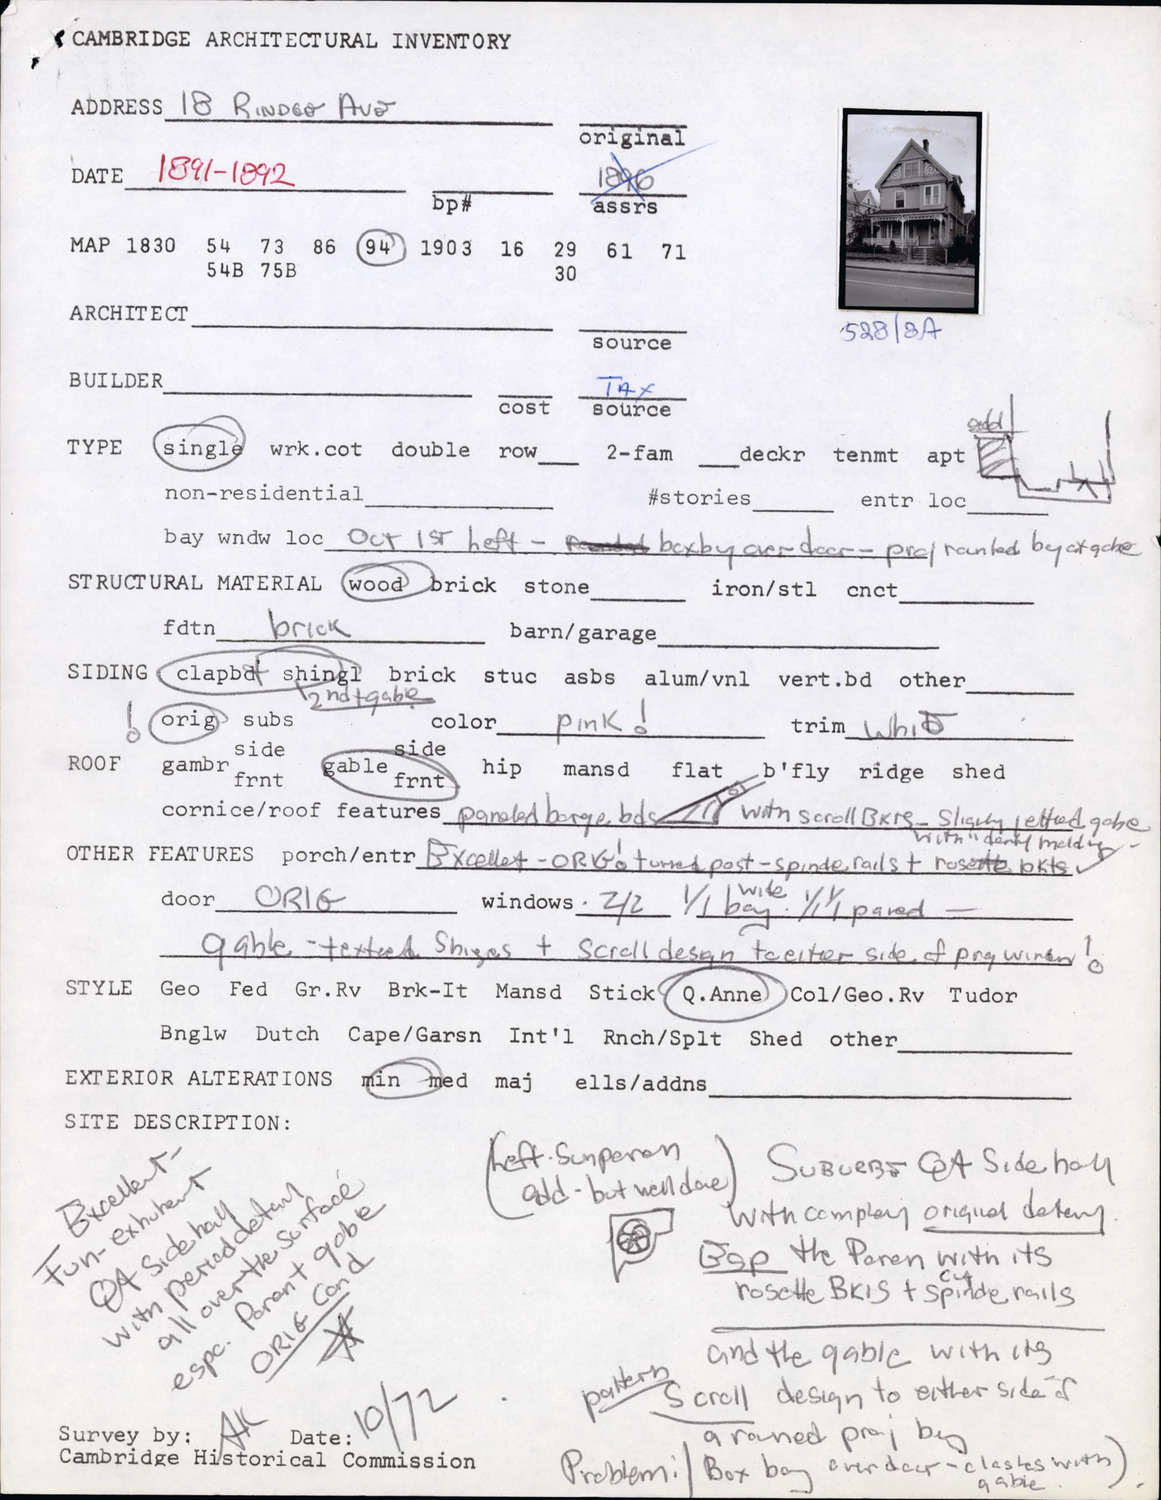 CAMBRIDGE ARCHITECTURAL INVENTORY
ADDRESS 18 RINDGE AVE
original
DATE 1891-1892 1896
bp# assrs
MAP 1830 54 73 86 94 1903 16 29 61 71
54B 75B 30
528/8A
ARCHITECT
source
BUILDER TAX
cost source
add
TYPE single wrk.cot double row 2-fam deckr tenmt apt
non-residential #stories entr loc
bay wndw loc Oct 1st Left - box bay over door - proj rounded bay at gable
STRUCTURAL MATERIAL wood brick stone iron/stl cnct
fdtn brick barn/garage
SIDING clapbd + shingl brick stuc asbs alum/vnl vert.bd other
2nd + gable
! orig subs color pink! trim white
side side
ROOF gambr gable hip mansd flat b'fly ridge shed
frnt frnt
cornice/roof features paneled barge bds with scroll BKTS - Slightly jettied gable
with "dentil molding"
OTHER FEATURES porch/entr Excellent - ORIG! turned post - spindle rails + rosette bkts
door ORIG windows 2/2 1/1 wide bay 1/1 1/1 paired
gable - textured Shingles + Scroll design to either side of proj window!
STYLE Geo Fed Gr.Rv Brk-It Mansd Stick Q.Anne Col/Geo.Rv Tudor
Bnglw Dutch Cape/Garsn Int'l Rnch/Splt Shed other
EXTERIOR ALTERATIONS min med maj ells/addns
SITE DESCRIPTION:
Excellent -
Fun - exhuberant
QA Side hall
with period detail
all over the surface
espc. Porch + gable
ORIG Cond
(Left - Sunporch
add - but well done)
SUBURBS QA Side hall
with complex original detail.
Esp the Porch with its
rosette BKTS + cut spindle rails
and the gable with its
pattern Scroll design to either side of
a round proj bay
Problem: (Box bay over door - clashes with gable.)
Survey by: AK Date: 10/72
Cambridge Historical Commission